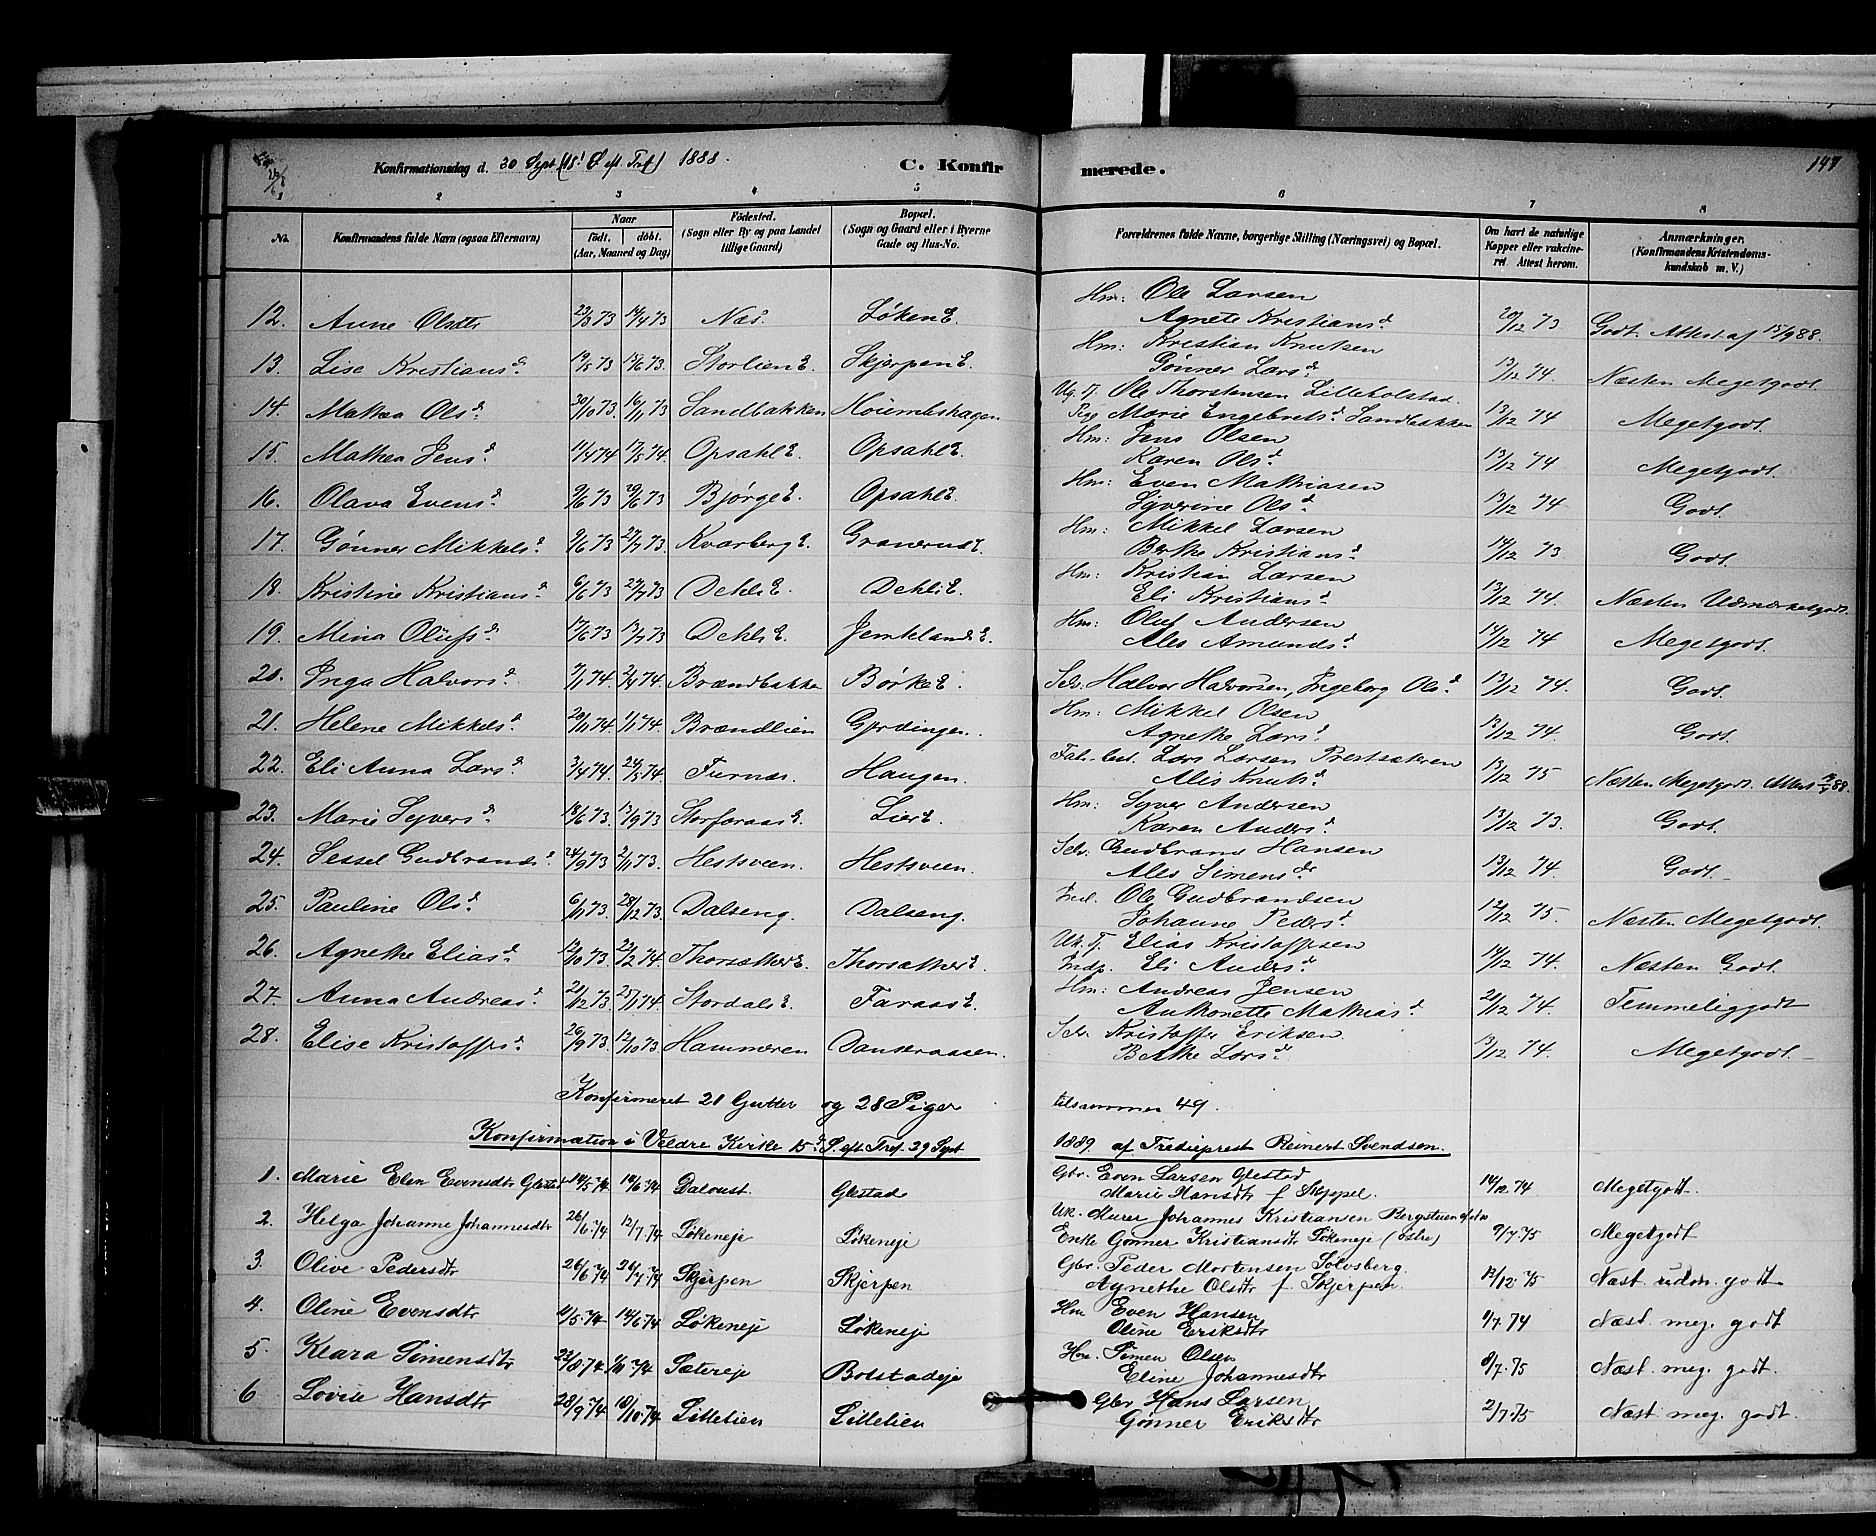 Konfirmationsdag d. 30 Sept (18! S. eft. Tref) 1888. C. Konfirmerede. 147
1 2 3 4 5 6 7 8
No. Konfirmandens fulde Navn (ogsaa Efternavn) Naar født. døbt. (Aar, Maaned og Dag) Fødested. (Sogn eller By og paa Landet tillige Gaard) Bopæl. (Sogn og Gaard eller i Byerne Gade og Hus-No. Forældrenes fulde Navne, borgerlige Stilling (Næringsvei) og Bopæl. Om havt de naturlige Kopper eller vakcineret. Attest herom. Anmærkninger. (Konfirmandens Kristendomskundskab m. V.)
12. Anne Olsdtr 23/3 73 14/4 73 Næs. LøkenE. Hm: Ole Larsen Agnete Kristiansd. 20/12 73 Godt. Attest af 15/9 88.
13. Lise Kristiansd. 19/5 73 15/6 73. StorlienE. SkjerpenE. Hm: Kristian Knutsen Gønner Larsd. 13/12 74. Næsten Megetgodt.
14. Mathea Olsd. 30/10 73. 16/11 73 Sandbakken Hoiumbshagen Ug. Tj. Ole Thorstensen Lillebolstad. Pige Marie Engebretsd. Sandbakken 13/12 74 Megetgodt.
15. Mathea Jensd. 11/4 74 17/5 74. OpsahlE. OpsahlE. Hm: Jens Olsen Karen Olsd. 13/12 74 Megetgodt.
16. Olava Evensd. 9/6 73 29/6 73 BjørgeE. OpsahlE. Hm: Even Mathiasen Syverine Olsd. 13/12 74 Godt.
17. Gønner Mikkelsd. 9/6 73 27/7 73 KvarbergE. GranerudE. Hm: Mikkel Larsen Berthe Kristiansd. 14/12 73 Godt.
18. Kristine Kristiansd. 6/6 73 27/7 73 DehliE. DehliE. Hm: Kristian Larsen Eli Kristiansd. 13/12 74. Næsten Udmærketgodt.
19. Mina Olufsd. 17/6 73 13/7 73 DehliE. JemtelandE. Hm: Oluf Andersen Ales Amundsd. 14/12 74 Megetgodt.
20. Inga Halvorsd. 7/1 74. 2/4 74. Brændbakken BørkeE. Selv. Halvor Halvorsen, Ingeborg Olsd. 13/12 74. Godt.
21. Helene Mikkelsd. 20/1 74. 1/1 74. Brændlien Gjørdingen. Hm: Mikkel Olsen Agnethe Larsd. 13/12 74. Godt.
22. Eli Anna Larsd. 3/4 74. 24/5 74. Furnæs. Haugen. Fat. best. Lars Larsen Prestsæteren Alis Knutsd. 13/12 75 Næsten Megetgodt. Attest 88.
23. Marie Syversd. 18/6 73. 17/9 73 StorfaraasE. LierE. Hm: Syver Andersen Karen Andersd. 13/12 73. Godt.
24. Sessel Gudbrandsd. 24/9 73 2/11 73. Hestsveen. Hestsveen. Selv. Gudbrand Hansen Ales Simensdr. 13/12 74. Godt.
25. Pauline Olsd. 6/11 73. 28/12 73. Dalseng. Dalseng. Ind. Ole Gudbrandsen Johanne Pedersd. 12/12 75. Næsten Megetgodt.
26. Agnethe Eliasd. 12/10 73. 22/2 74. ThorsætherE. ThorsætherE. Uk. Tj. Elias Kristoffersen Indp. Eli Andersd. 14/12 74. Næsten Godt.
27. Anna Andreasd. 21/12 73. 25/1 74. StordalsE. FaraasE. Hm: Andreas Jensen Anthonette Mathiasd. 21/12 74. Temmeliggodt
28. Elise Kristoffersd. 26/9 73. 12/10 73. Hammeren Danseraasen. Selv. Kristoffer Eriksen Berthe Larsd. 13/12 74. Megetgodt.
Konfirmeret 21 Gutter og 28 Piger tilsammen 49.
Konfirmation i Veldre Kirke 15d. S. eft. Tref. 29 Sept 1889 af Trediprest Reinert Svendsen.
1. Marie Elen Evensdtr Glestad 14/5 74 14/6 74 Daloust. Glestad Gbr. Even Larsen Glestad Marie Hansdtr f. Skjppel. 14/12 74 Megetgodt.
2. Helga Johanne Johannesdtr 26/6 74 12/7 74 Løkeneje Løkeneje Uk. Murer Johannes Kristiansen Bergsteien Enke Gønner Kristiansdtr Løkeneje (østre) 9/7 75 Megetgodt
3. Olive Pedersdtr 26/6 74 26/7 74 Skjerpen Skjerpen Gbr. Peder Mortensen Solvsberg. Agnethe Olsdtr f. Skjerpen. 12/12 75 Næst. udm. godt
4. Oline Evensdtr 4/5 74 14/6 74 Løkeneje Løkeneje Hm Even Hansen Oline Eriksdtr 1/7 74 Næst. meg. godt
5. Klara Simensdtr 23/8 74 1/11 74 Sætereje Bolstadeje Hm. Simen Olsen Eline Johannesdtr 8/7 75 Næst. meg. godt.
6 Lovise Hansdtr 28/9 74 18/10 74 Lillelien Lillelien Gbr Hans Larsen Gønner Eriksdtr 2/7 75 Næst. meg. godt.